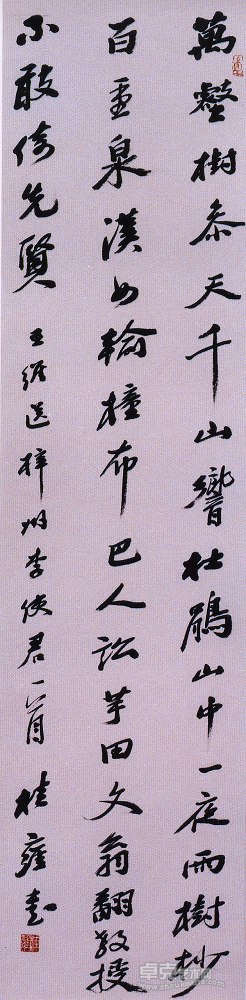 萬壑樹參天千山響杜鵑山中一夜雨樹杪
百重泉漢女輸橦布巴人訟芋田文翁翻教授
不敢倚先賢 王維送梓州李使君一首 桂雍書